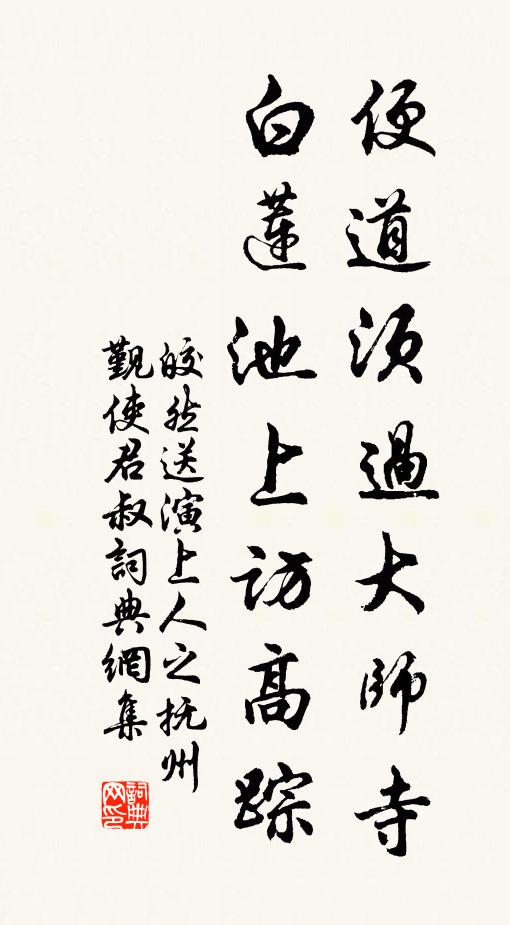 便道須過大師寺
白蓮池上訪高踪
皎然送演上人之抚州
觐使君叔詞典網集
詞典网印